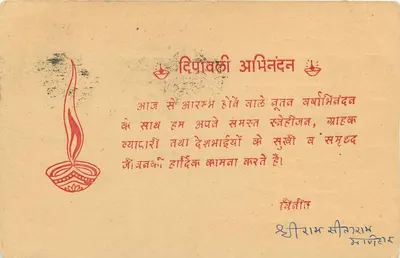 दिपावली अभिनंदन
आज से आरम्भ होने वाले नूतन वर्षाभिनंदन
के साथ हम अपने समस्त स्नेहीजन, ग्राहक
व्यापारी तथा देशभाईयों के सुखी व समृध्द
जीवनकी हार्दिक कामना करते है।
विनीत
श्रीराम सीताराम